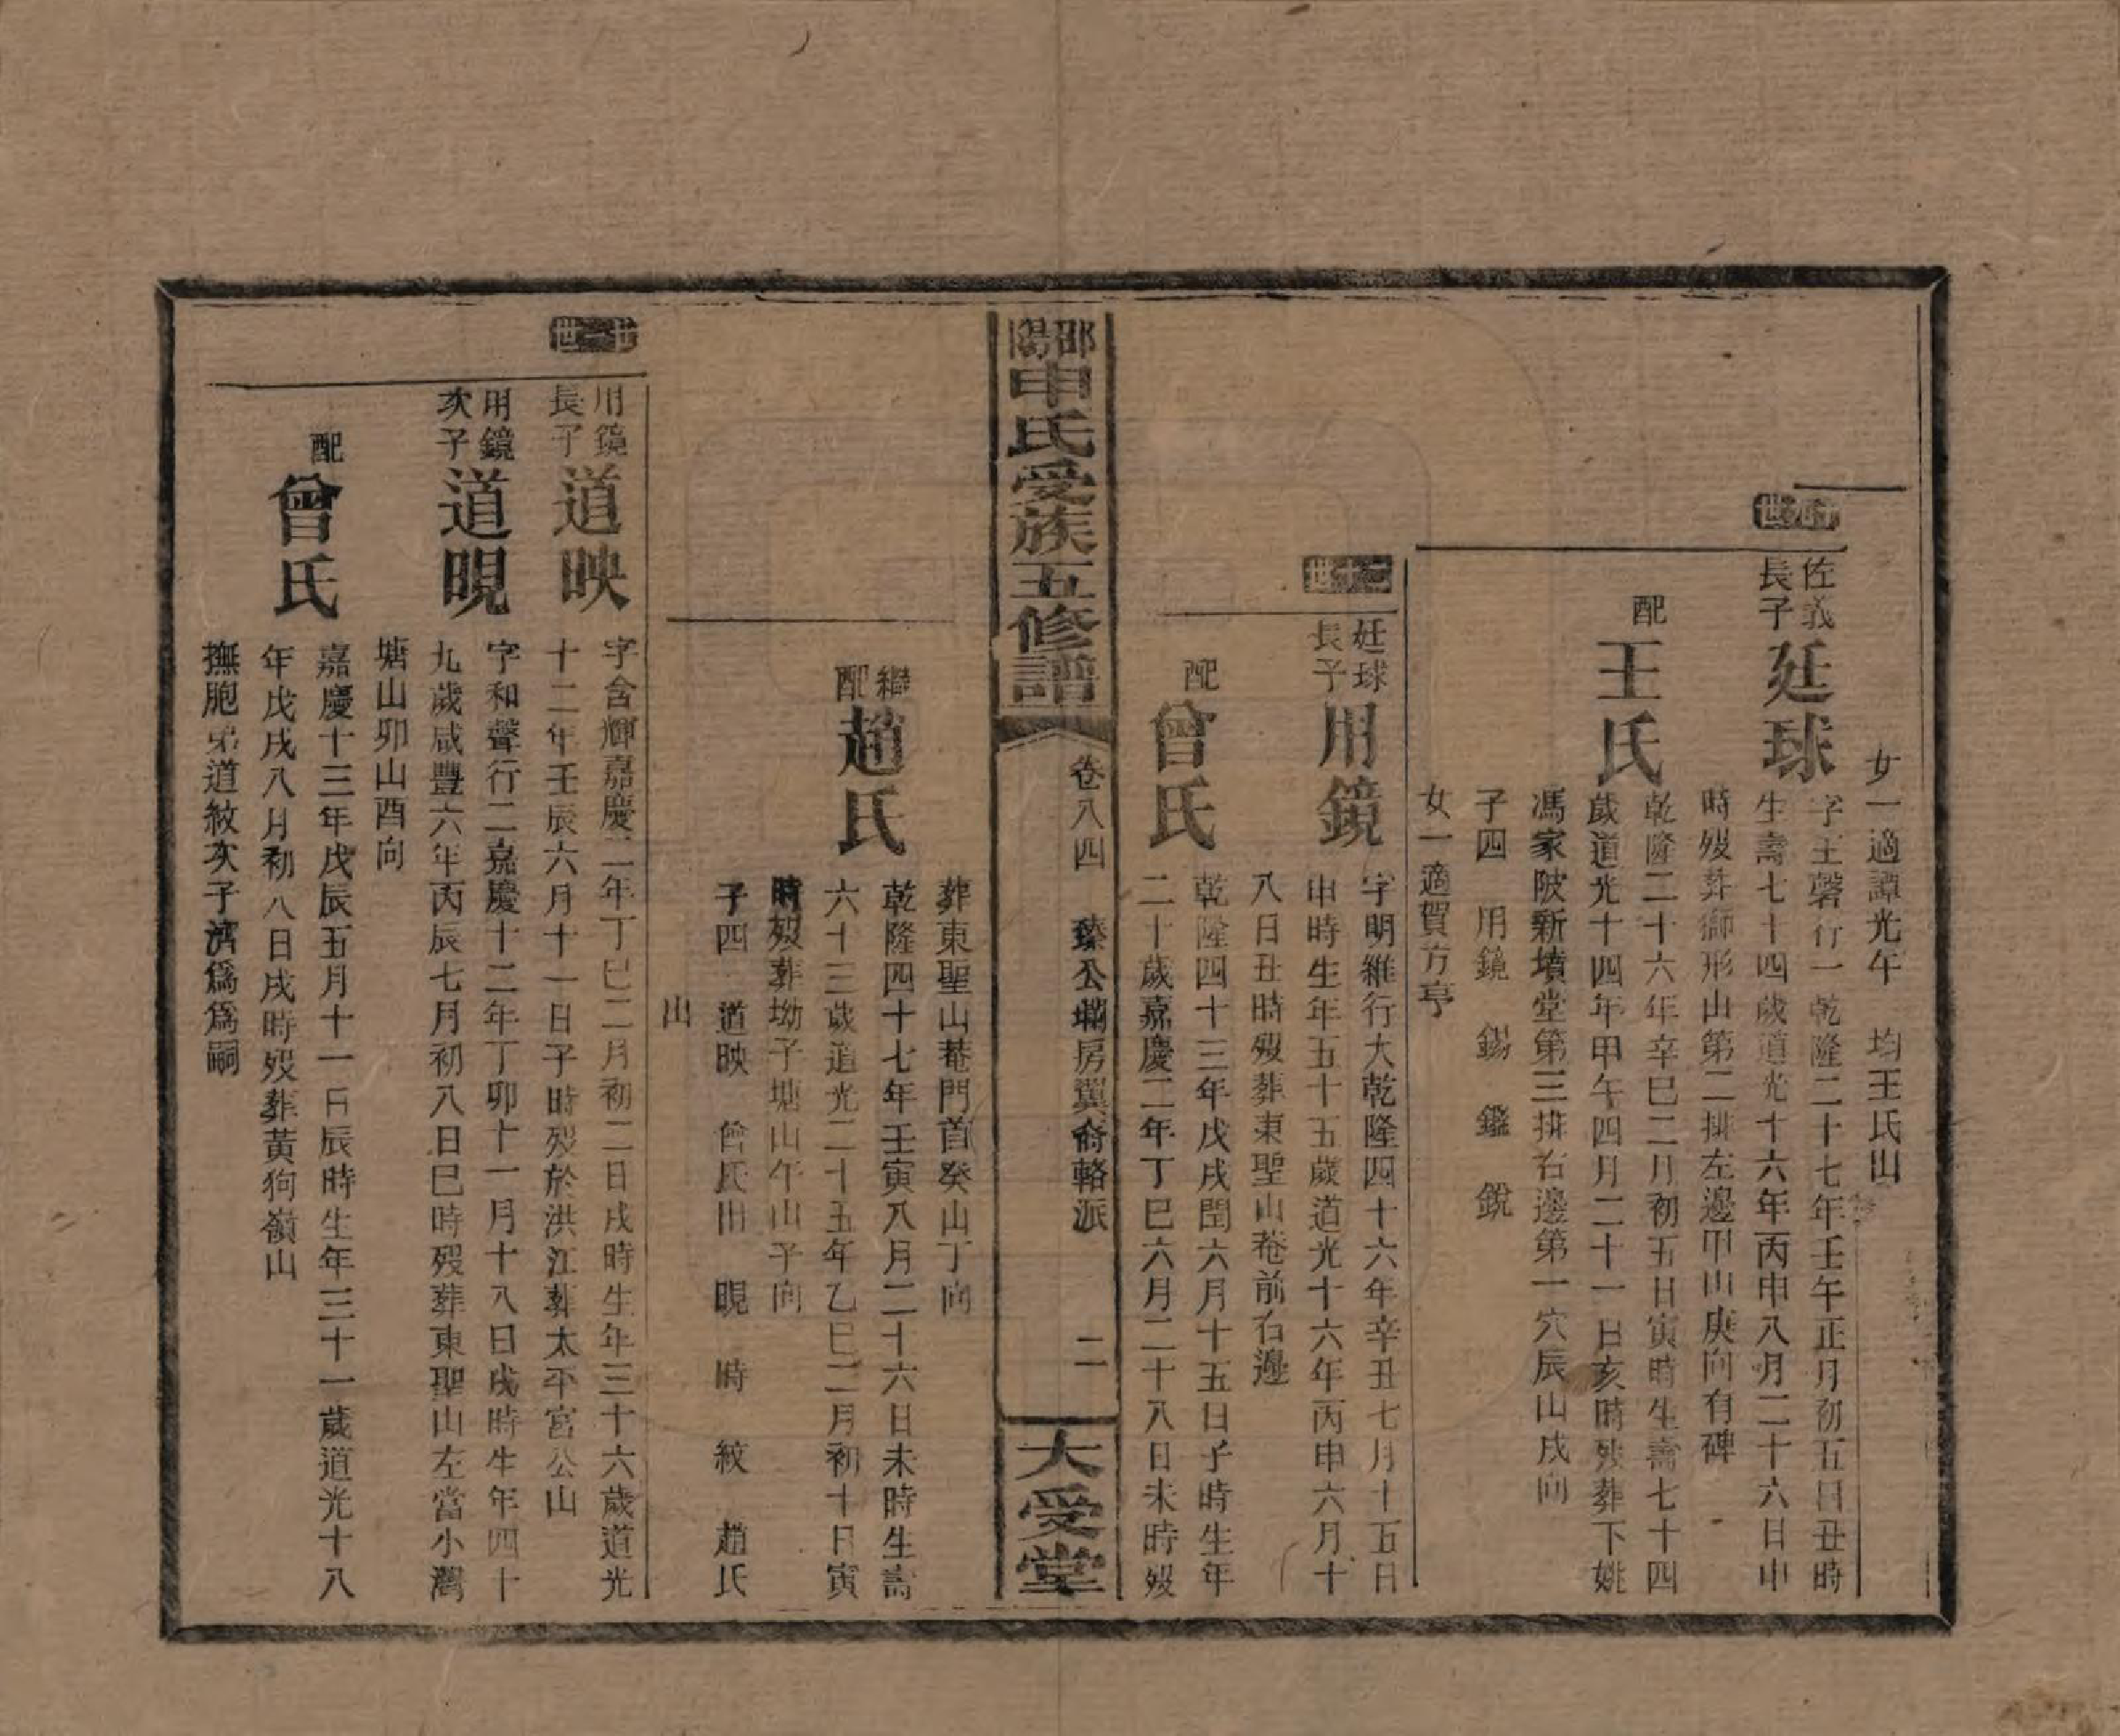 女一適譚光午　均王氏出
十九世
佐義長子
廷球
字玉磬行一乾隆二十七年壬午正月初五日丑時
生壽七十四歲道光十六年丙申八月二十六日申
時歿葬獅形山第二排左邊甲山庚向有碑
配
王氏
乾隆二十六年辛巳二月初五日寅時生壽七十四
歲道光十四年甲午四月二十一日亥時歿葬下姚
馮家陂新墳堂第三排右邊第一穴辰山戌向
子四　用鏡　錫　鑑　銳
女一適賀方亭
二十世
廷球長子
用鏡
字明維行大乾隆四十六年辛丑七月十五日
申時生年五十五歲道光十六年丙申六月十
八日丑時歿葬東聖山菴前右邊
配
曾氏
乾隆四十三年戊戌閏六月十五日子時生年
二十歲嘉慶二年丁巳六月二十八日未時歿
邵陽申氏受族五修譜
卷八四　臻公壩房翼裔輅派　二
大受堂
葬東聖山菴門首癸山丁向
繼配
趙氏
乾隆四十七年壬寅八月二十六日未時生壽
六十三歲道光二十五年乙巳二月初十日寅
時歿葬坳子塘山午山子向
子四　道映　曾氏出　晛　時　紋　趙氏
出
廿一世
用鏡長子
道映
字含輝嘉慶二年丁巳二月初二日戌時生年三十六歲道光
十二年壬辰六月十一日子時歿於洪江葬太平宮公山
用鏡次子
道晛
字和聲行二嘉慶十二年丁卯十一月十八日戌時生年四十
九歲咸豐六年丙辰七月初八日巳時歿葬東聖山左當小灣
塘山卯山酉向
配
曾氏
嘉慶十三年戊辰五月十一日辰時生年三十一歲道光十八
年戊戌八月初八日戌時歿葬黃狗嶺山
撫胞弟道紋次子濟爲爲嗣